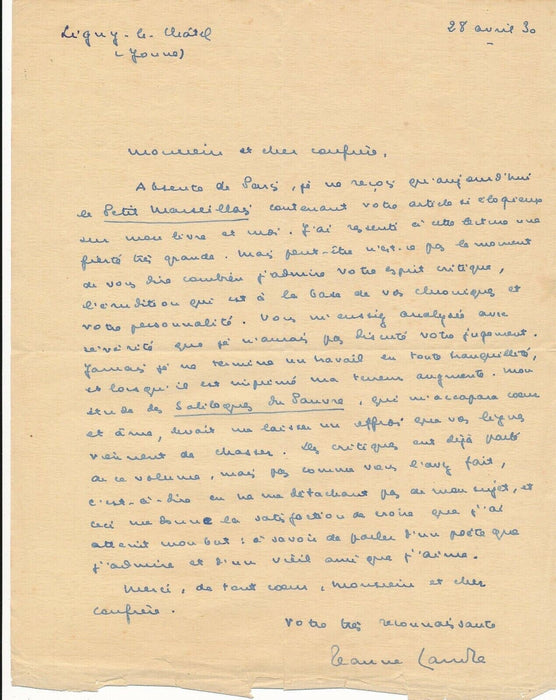 Ligny-le-Châtel
(Yonne)
28 avril 30
Monsieur et cher confrère,
Absente de Paris, je ne reçois qu'aujourd'hui
le Petit Marseillais contenant votre article si élogieux
sur mon livre et moi. J'ai ressenti à cette lecture une
fierté très grande. Mais peut-être n'est-ce pas le moment
de vous dire combien j'admire votre esprit critique,
l'érudition qui est à la base de vos chroniques et
votre personnalité. Vous m'eussiez analysée avec
sévérité que je n'aurais pas discuté votre jugement.
Jamais je ne termine un travail en toute tranquillité,
et lorsqu'il est imprimé ma terreur augmente. Mon
étude des Soliloques du Pauvre, qui m'accapara cœur
et âme, devait me laisser un effroi que vos lignes
viennent de chasser. Des critiques ont déjà parlé
de ce volume, mais pas comme vous l'avez fait,
c'est-à-dire en ne me détachant pas de mon sujet, et
ceci me donne la satisfaction de croire que j'ai
atteint mon but : à savoir de parler d'un poète que
j'admire et d'un vieil ami que j'aime.
Merci, de tout cœur, Monsieur et cher
confrère.
Votre très reconnaissante
Jeanne Landre